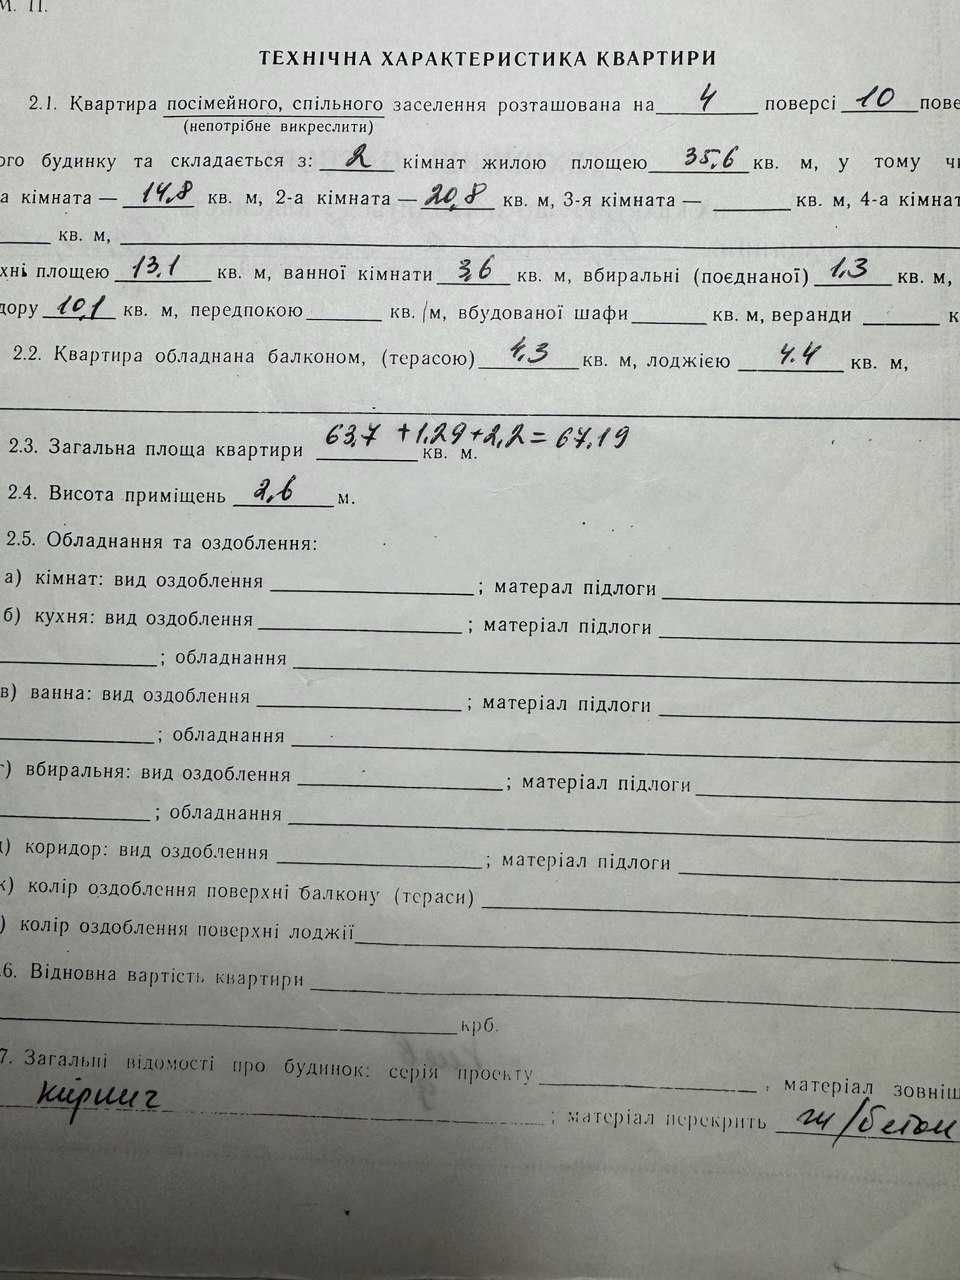 М. П.
ТЕХНІЧНА ХАРАКТЕРИСТИКА КВАРТИРИ
2.1. Квартира посімейного, спільного заселення розташована на 4 поверсі 10 пове
(непотрібне викреслити)
ого будинку та складається з: 2 кімнат жилою площею 35,6 кв. м, у тому чи
а кімната — 14,8 кв. м, 2-а кімната — 20,8 кв. м, 3-я кімната — кв. м, 4-а кімнат
кв. м,
хні площею 13,1 кв. м, ванної кімнати 3,6 кв. м, вбиральні (поєднаної) 1,3 кв. м,
дору 10,1 кв. м, передпокою кв. м, вбудованої шафи кв. м, веранди к
2.2. Квартира обладнана балконом, (терасою) 4,3 кв. м, лоджією 4.4 кв. м,
2.3. Загальна площа квартири 63,7 +1,29+2,2= 67,19 кв. м.
2.4. Висота приміщень 2,6 м.
2.5. Обладнання та оздоблення:
а) кімнат: вид оздоблення ; матерал підлоги
б) кухня: вид оздоблення ; матеріал підлоги
; обладнання
в) ванна: вид оздоблення ; матеріал підлоги
; обладнання
г) вбиральня: вид оздоблення ; матеріал підлоги
; обладнання
д) коридор: вид оздоблення ; матеріал підлоги
ж) колір оздоблення поверхні балкону (тераси)
) колір оздоблення поверхні лоджії
.6. Відновна вартість квартири
крб.
7. Загальні відомості про будинок: серія проекту , матеріал зовніш
кирпич ; матеріал перекрить ж/бетон